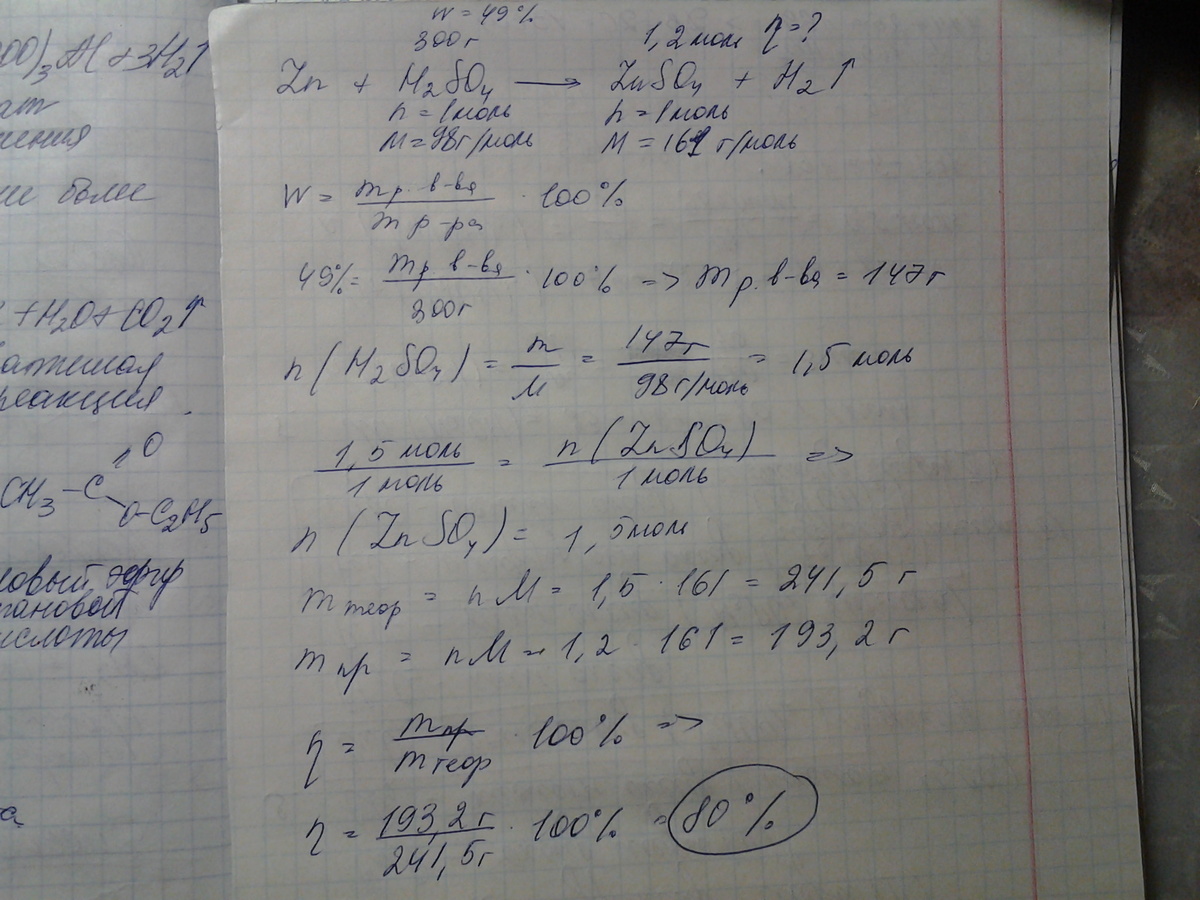 OO)₃Al + 3H₂↑
ши боли
+H₂O + CO₂↑
реакция
O
CH₃ – C
O–C₂H₅
эфир
W = 49%
300г 1,2 моль η = ?
Zn + H₂SO₄ ⟶ ZnSO₄ + H₂↑
n = 1 моль n = 1 моль
M = 98г/моль M = 161 г/моль
W = mр. в-ва / m р-ра · 100%
49% = mр. в-ва / 300г · 100% => mр. в-ва = 147г
n (H₂SO₄) = m / M = 147г / 98г/моль = 1,5 моль
1,5 моль / 1 моль = n (ZnSO₄) / 1 моль =>
n (ZnSO₄) = 1,5 моль
mтеор = nM = 1,5 · 161 = 241,5 г
mпр = nM = 1,2 · 161 = 193,2 г
η = mпр / mтеор · 100% =>
η = 193,2г / 241,5г · 100% = 80%